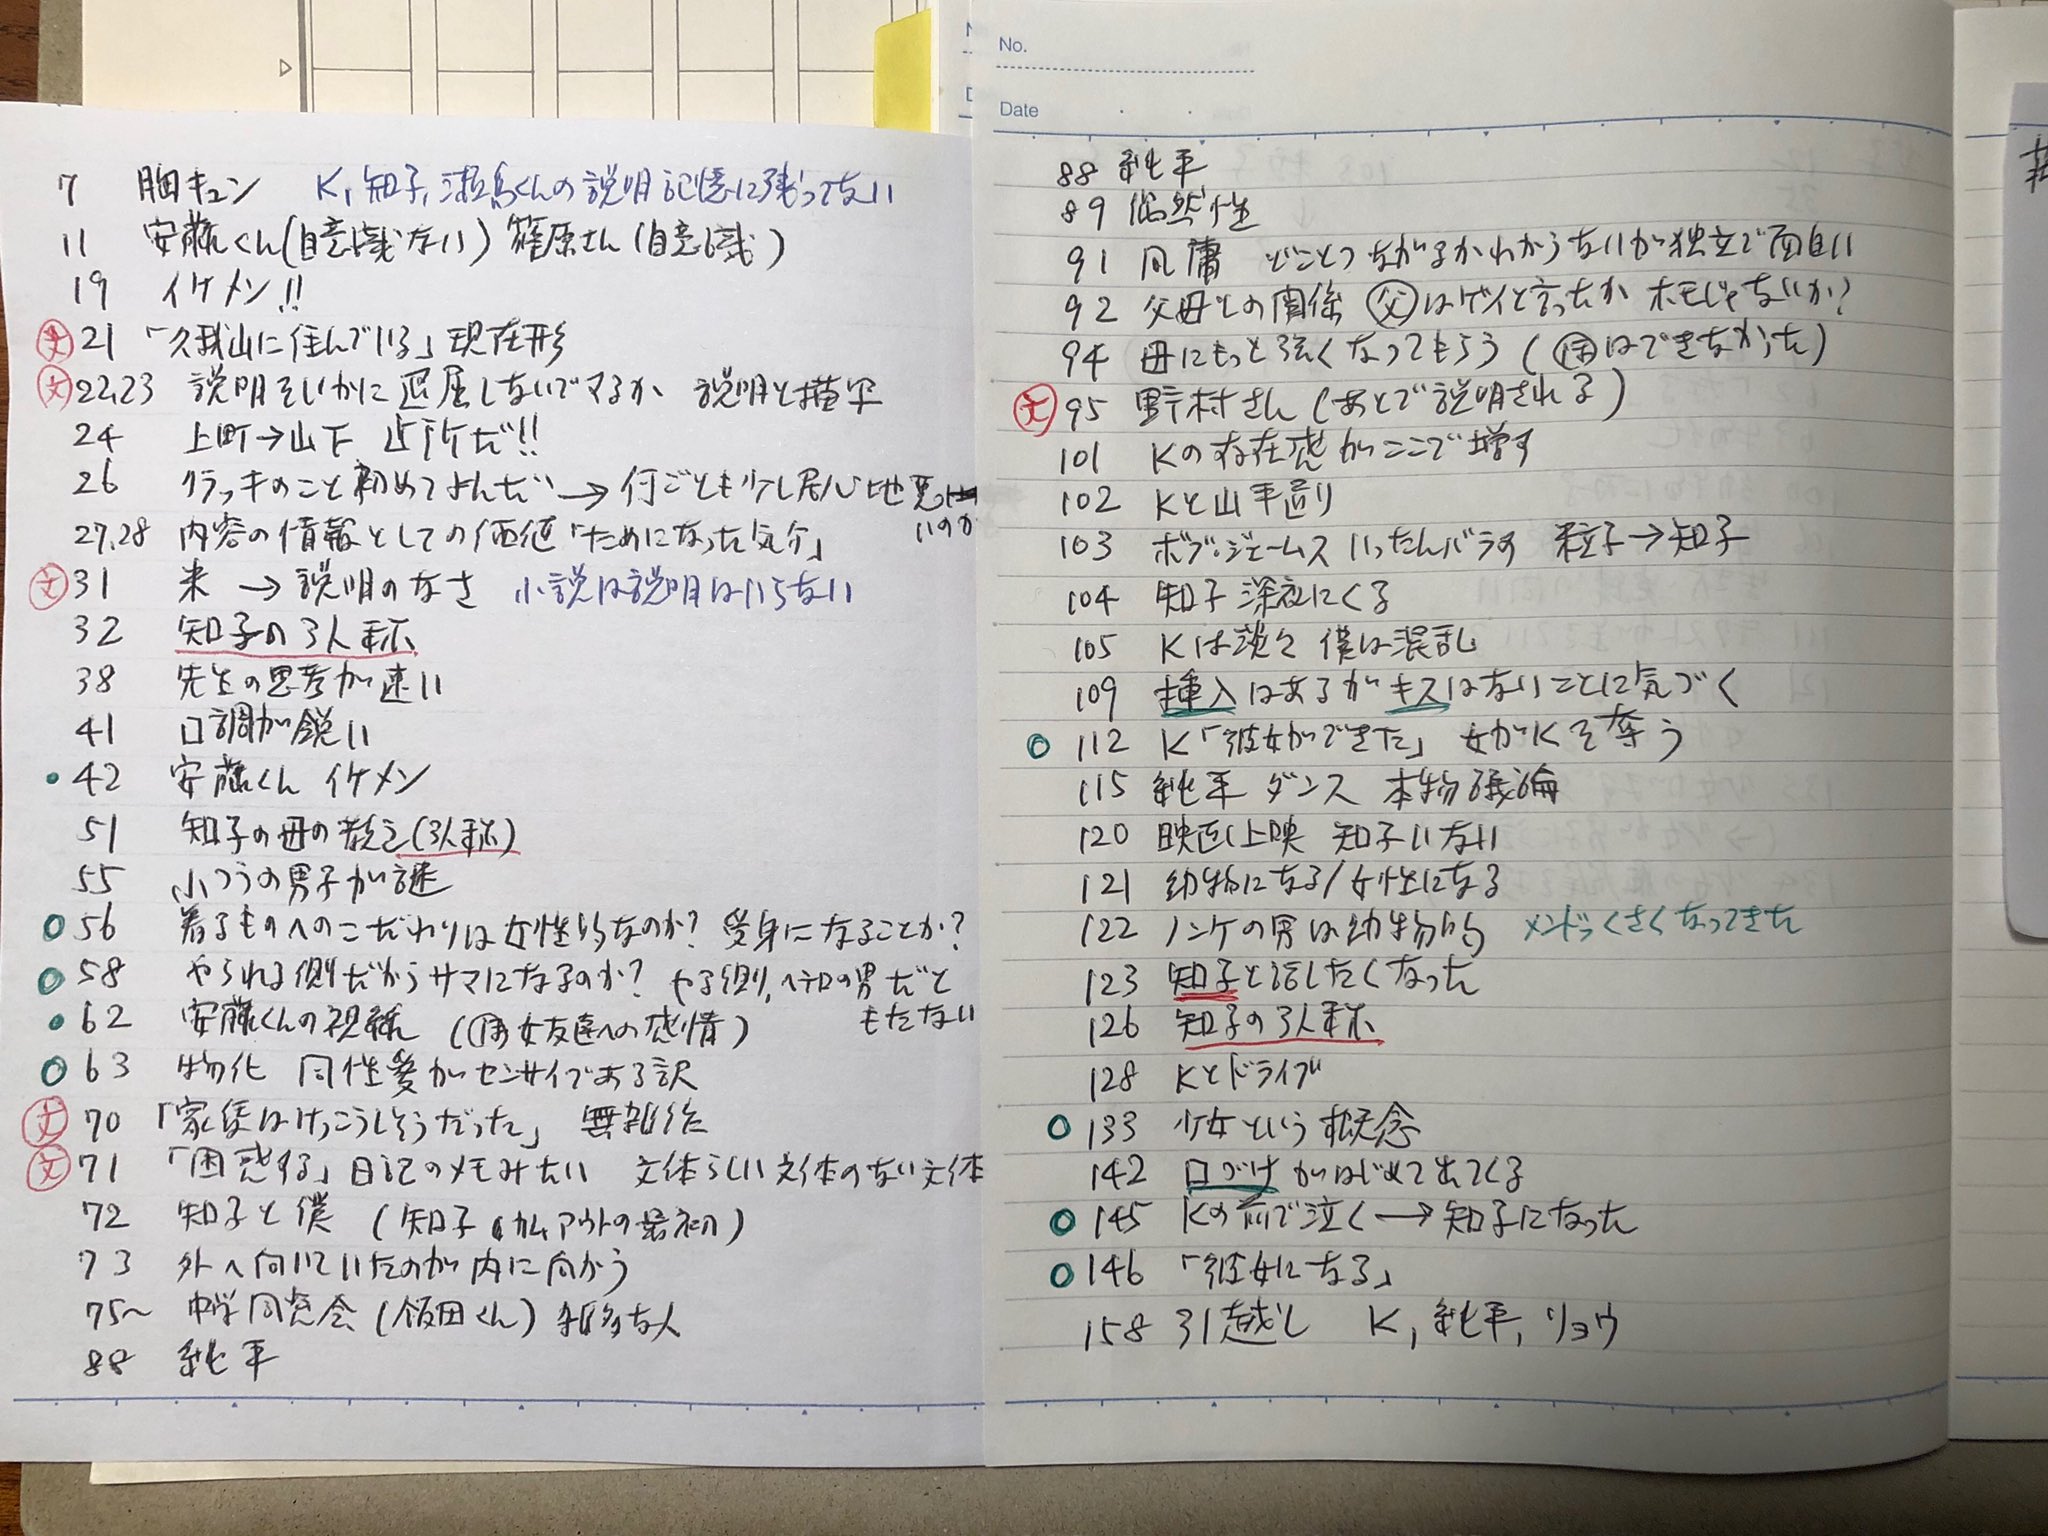 7 胸キュン K,知子,瀬島くんの説明 記憶に残ってない
11 安藤くん(自意識ない) 篠原さん(自意識)
19 イケメン!!
文 21 「久我山に住んでいる」現在形
文 22,23 説明をいかに退屈しないでするか 説明と描写
24 上町→山下 近所だ!!
26 クラッキのこと初めてよんだ → 何ごとも少し居心地悪
いのか
27,28 内容の情報としての価値「ためになった気分」
文 31 米 → 説明のなさ 小説は説明はいらない
32 知子の3人称
38 先生の思考が速い
41 口調が鋭い
42 安藤くん イケメン
51 知子の母の教え(3人称)
55 ふつうの男子が謎
56 着るものへのこだわりは女性的なのか? 受身になることか?
58 やられる側だからサマになるのか? やる側,ヘテロの男だと
もたない
62 安藤くんの視線 (僕 女友達への感情)
63 生物化 同性愛がセンサイである訳
文 70 「家賃はけっこうしそうだった」 無雑作
文 71 「困惑する」日記のメモみたい 文体らしい文体のない文体
72 知子と僕 (知子 カムアウトの最初)
73 外へ向いていたのが内に向かう
75〜 中学同窓会(飯田くん) 雑多な人
88 純平
No.
Date
88 純平
89 偶然性
91 凡庸 どことつながるかわからないが独立で面白い
92 父母との関係 父はゲイと言ったか ホモじゃないか?
94 母にもっと強くなってもらう (僕はできなかった)
文 95 野村さん (あとで説明される)
101 Kの存在感がここで増す
102 Kと山手通り
103 ボブ・ジェームス いったんバラす 粒子→知子
104 知子 深夜にくる
105 Kは淡々 僕は混乱
109 挿入はあるがキスはないことに気づく
112 K「彼女ができた」 女がKを奪う
115 純平 ダンス 本物議論
120 映画上映 知子いない
121 動物になる/女性になる
122 ノンケの男は動物的 メンドっくさくなってきた
123 知子と話したくなった
126 知子の3人称
128 Kとドライブ
133 少女という概念
142 口づけがはじめて出てくる
145 Kの前で泣く → 知子になった
146 「彼女になる」
158 引越し K,純平,リョウ